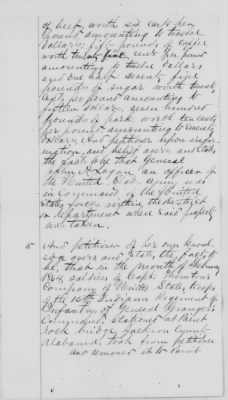 of beef, worth six cents per
pound amounting to twelve
dollars; fifty pounds of coffee
worth twenty five cents per pound
amounting to twelve dollars
and one half seventy five
pounds of sugar worth twenty
cents per pound amounting to
fifteen dollars, seven hundred
pounds of pork, worth ten cents
per pound amounting to seventy
dollars, And petitioner upon infor-
mation, and belief avers and states
the fact to be that General
John A. Logan, an officer of
the United States army was
in command of the United
States forces within the district
or department where said property
was taken.
5 And petitioner of her own knowl-
edge avers and states the fact to
be, that in the month of
1864, soldiers of Capt.
Company of United States troops
of the 12th Indiana Regiment of
Infantry, of General
Command, stationed at Paint
Rock bridge Jackson County
Alabama took from petitioner
and removed it to Paint